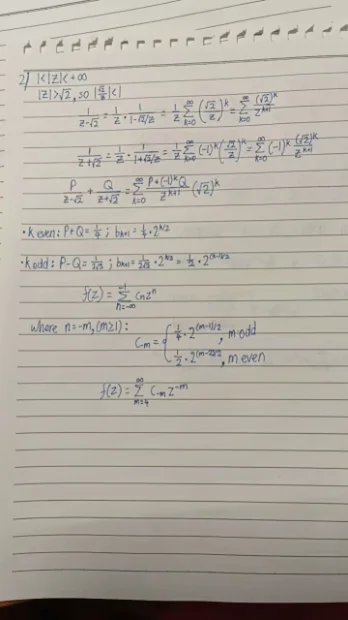 2) 1<|z|<+∞
|z|>√2, so |√2/z|<1
1/(z-√2) = 1/z · 1/(1-√2/z) = 1/z ∑_{k=0}^{∞} (√2/z)^k = ∑_{k=0}^{∞} (√2)^k/z^{k+1}
1/(z+√2) = 1/z · 1/(1+√2/z) = 1/z ∑_{k=0}^{∞} (-1)^k (√2/z)^k = ∑_{k=0}^{∞} (-1)^k (√2)^k/z^{k+1}
P/(z-√2) + Q/(z+√2) = ∑_{k=0}^{∞} (P+(-1)^k Q)/z^{k+1} (√2)^k
· k even: P+Q = 1/4 ; b_{k+1} = 1/4 · 2^{k/2}
· k odd: P-Q = 1/(2√2) ; b_{k+1} = 1/(2√2) · 2^{k/2} = 1/2 · 2^{(k-1)/2}
f(z) = ∑_{n=-∞}^{-1} c_n z^n
where n=-m, (m≥1):
c_{-m} = { 1/4 · 2^{(m-1)/2}, m odd
1/2 · 2^{(m-2)/2}, m even
f(z) = ∑_{m=1}^{∞} c_{-m} z^{-m}